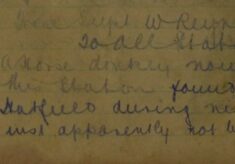 Supt W Reyn
To All Stat
a Horse donkey now
this Station found
Hatfield during ni
just apparently not b